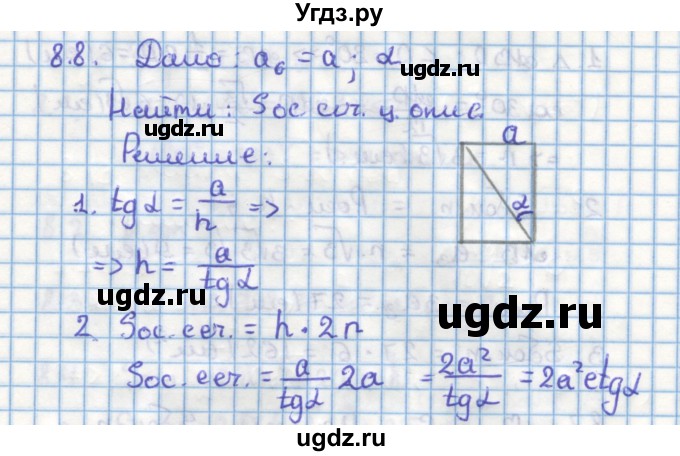 Угдз.ру
8.8. Дано: a₆ = a; α
ugdz.ru
Найти: Sос. сеч. ц. опис.
Решение:
a
α
1. tgα = a/h =>
=> h = a/tgα
ugdz.ru
ugdz.ru
ugdz.ru
2. Sос. сеч. = h · 2r
Sос. сеч. = a/tgα 2a = 2a²/tgα = 2a²ctgα
ugdz.ru